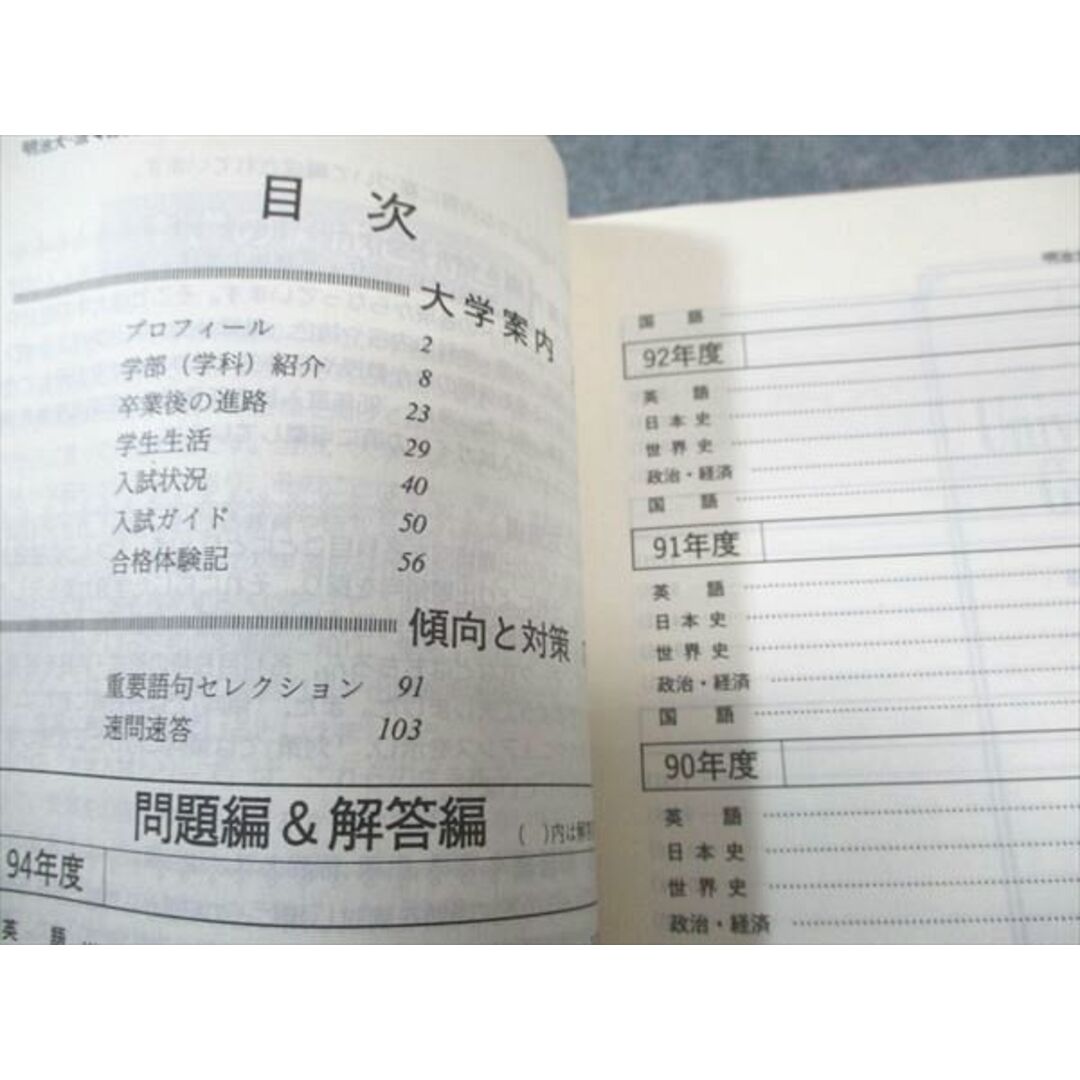 目次
大学案内
プロフィール 2
学部（学科）紹介 8
卒業後の進路 23
学生生活 29
入試状況 40
入試ガイド 50
合格体験記 56
傾向と対策
重要語句セレクション 91
速問速答 103
問題編＆解答編 （ ）内は解答
94年度
英語
国語
92年度
英語
日本史
世界史
政治・経済
国語
91年度
英語
日本史
世界史
政治・経済
国語
90年度
英語
日本史
世界史
政治・経済